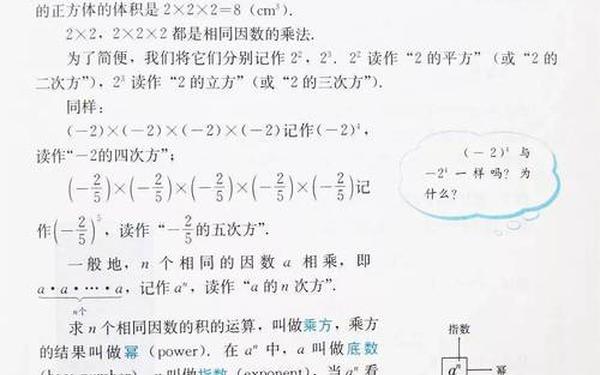 的正方体的体积是 2×2×2=8 (cm³).
2×2, 2×2×2 都是相同因数的乘法.
为了简便,我们将它们分别记作 2², 2³. 2² 读作“2 的平方”(或“2 的
二次方”), 2³ 读作“2 的立方”(或“2 的三次方”).
同样:
(-2)×(-2)×(-2)×(-2)记作(-2)⁴,
读作“-2的四次方”;
(-2/5)×(-2/5)×(-2/5)×(-2/5)×(-2/5)记
作(-2/5)⁵, 读作“-2/5的五次方”.
(-2)⁴ 与
-2⁴ 一样吗?为
什么?
一般地, n 个相同的因数 a 相乘, 即
a·a·…·a, 记作 aⁿ, 读作“a的 n 次方”.
n个
求 n 个相同因数的积的运算, 叫做乘方, 乘方
的结果叫做幂 (power). 在 aⁿ 中, a 叫做底数
指数
aⁿ
幂
(base number), n 叫做指数 (exponent). 当 aⁿ 看